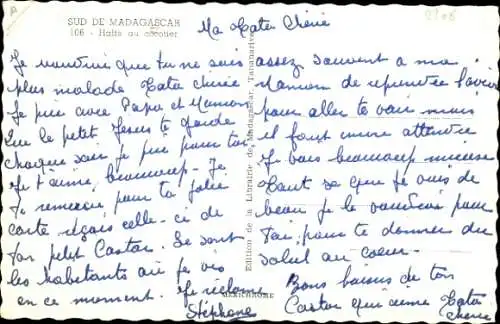 SUD DE MADAGASCAR
106 - Halte au cocotier
Ma Tata Chérie
Je voudrai que tu ne sois
plus malade Tata chérie
Je prie avec Papa et Maman
Que le petit Jésus te garde
chaque soir je prie pour toi
Je t'aime beaucoup. Je
Te remercie pour ta jolie
carte reçois celle-ci de
ton petit Castor. Ce sont
les habitants où je vis
en ce moment. Je réclame
Stéphane
assez souvent à ma
Maman de reprendre l'avion
pour aller te voir mais
il faut encore attendre
Je vais beaucoup mieux
Tout ce que je vois de
beau je le voudrais pour
Toi, pour te donner du
soleil au coeur.
Bons baisers de ton
Castor qui aime Tata
chérie
Edition de la Librairie de Madagascar, Tananarive
MEXICHROME